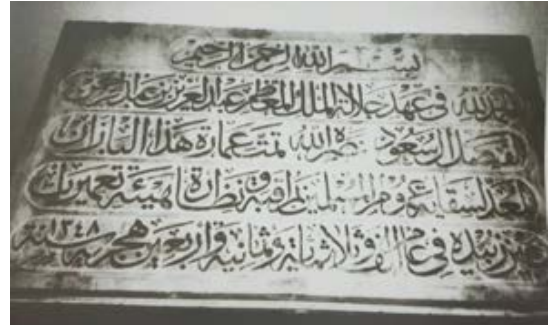 بسم الله الرحمن الرحيم
الحمد لله في عهد جلالة الملك المعظم عبد العزيز بن عبد الرحمن
الفيصل السعود نصره الله تمت عمارة هذا البازان
المعد لسقاية عموم المسلمين بمراقبة ونظارة هيئة تعميرات
عين زبيدة في عام الف وثلاثماية وثمانية واربعين هجرية سنة ١٣٤٨